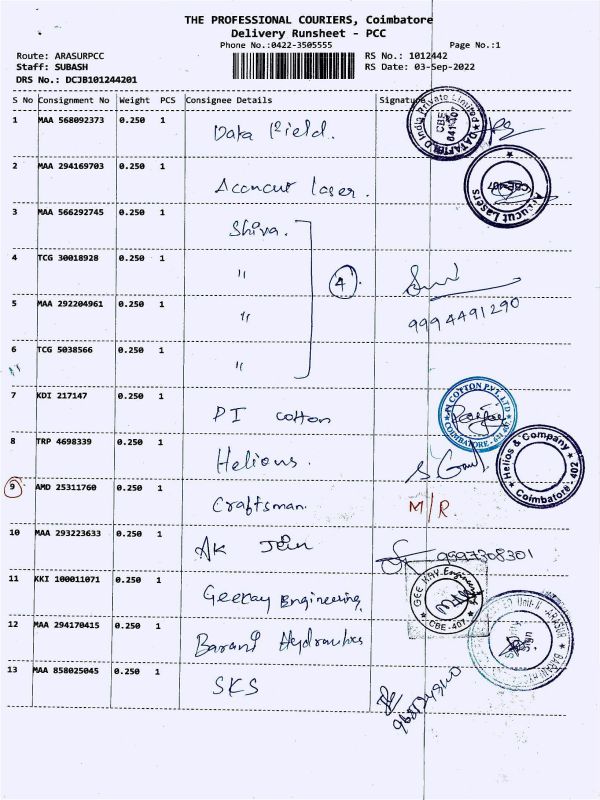 THE PROFESSIONAL COURIERS, Coimbatore
Delivery Runsheet - PCC
Phone No.:0422-3505555 Page No.:1
Route: ARASURPCC RS No.: 1012442
Staff: SUBASH RS Date: 03-Sep-2022
DRS No.: DCJB101244201
S No Consignment No Weight PCS Consignee Details Signature
1 MAA 568092373 0.250 1 Data Field. DATAFIELD India Private Limited CBE 641 407
2 MAA 294169703 0.250 1 Accucut laser. Accucut Lasers CBE-407
3 MAA 566292745 0.250 1 Shiva.
4 TCG 30018928 0.250 1 " 4
5 MAA 292204961 0.250 1 " 9994491290
6 TCG 5038566 0.250 1 "
7 KDI 217147 0.250 1 PI cotton COTTON PVT. LTD COIMBATORE
8 TRP 4698339 0.250 1 Helious. Helios & Company Coimbatore - 402
9 AMD 25311760 0.250 1 Craftsman. M/R.
10 MAA 293223633 0.250 1 AK Jein 9597308301
11 KKI 100011071 0.250 1 Geekay Engineering GEE KAY Engineers CBE-407
12 MAA 294170415 0.250 1 Barani Hydraulics
13 MAA 858025045 0.250 1 SKS